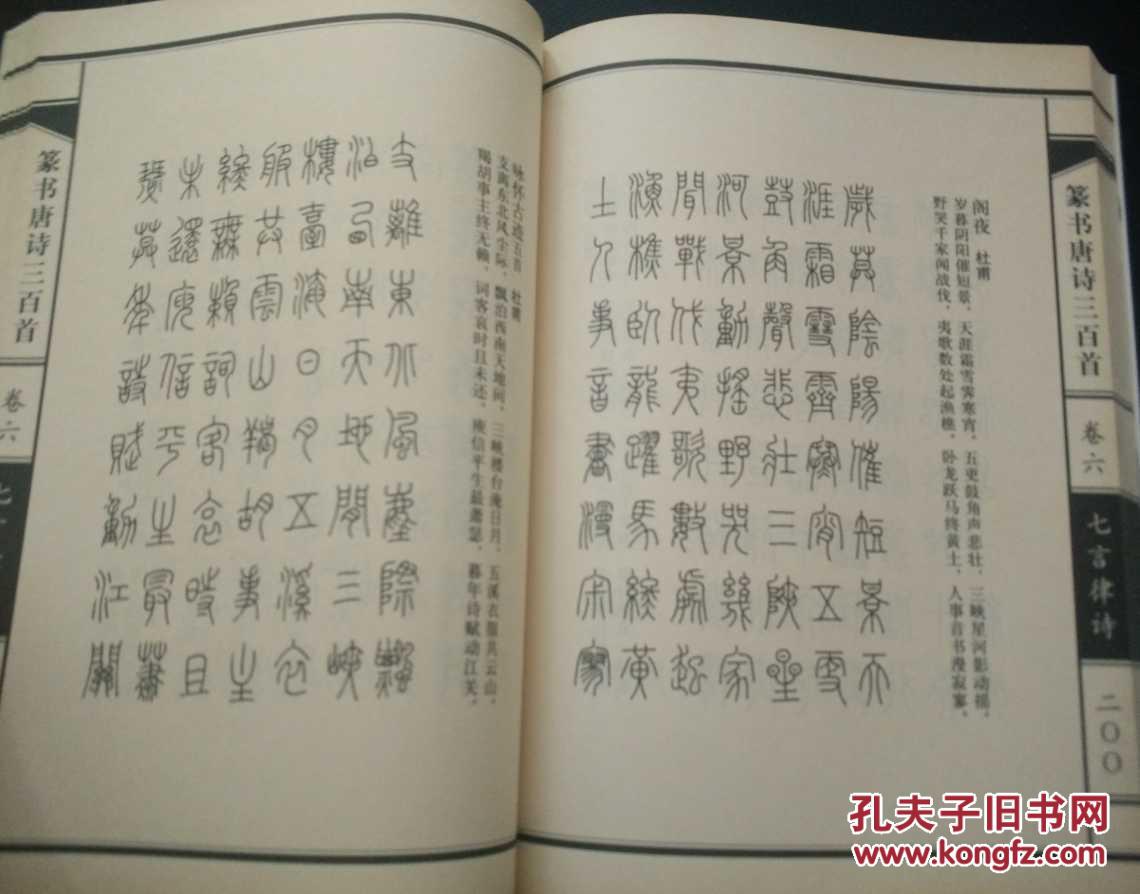 篆书唐诗三百首
卷六
七言律诗
二〇〇
阁夜 杜甫
岁暮阴阳催短景，天涯霜雪霁寒宵，五更鼓角声悲壮，三峡星河影动摇，
野哭千家闻战伐，夷歌数处起渔樵，卧龙跃马终黄土，人事音书漫寂寥，
歲莫陰陽催短景天
涯霜雪霽寒宵五更
鼓角聲悲壯三陝星
河景動搖野哭幾家
聞戰伐夷歌數處起
漁樵臥龍躍馬終黄
土人事音書漫宋寥
咏怀古迹五首 杜甫
支离东北风尘际，飘泊西南天地间，三峡楼台淹日月，五溪衣服共云山，
羯胡事主终无赖，词客哀时且未还，庾信平生最萧瑟，暮年诗赋动江关，
支離東北風塵際飄
泊西南天地間三峽
樓臺淹日月五溪衣
服共雲山羯胡事主
終無賴詞客哀時且
未還庾信平生最蕭
瑟莫年詩賦動江關
篆书唐诗三百首
卷六
孔夫子旧书网
www.kongfz.com